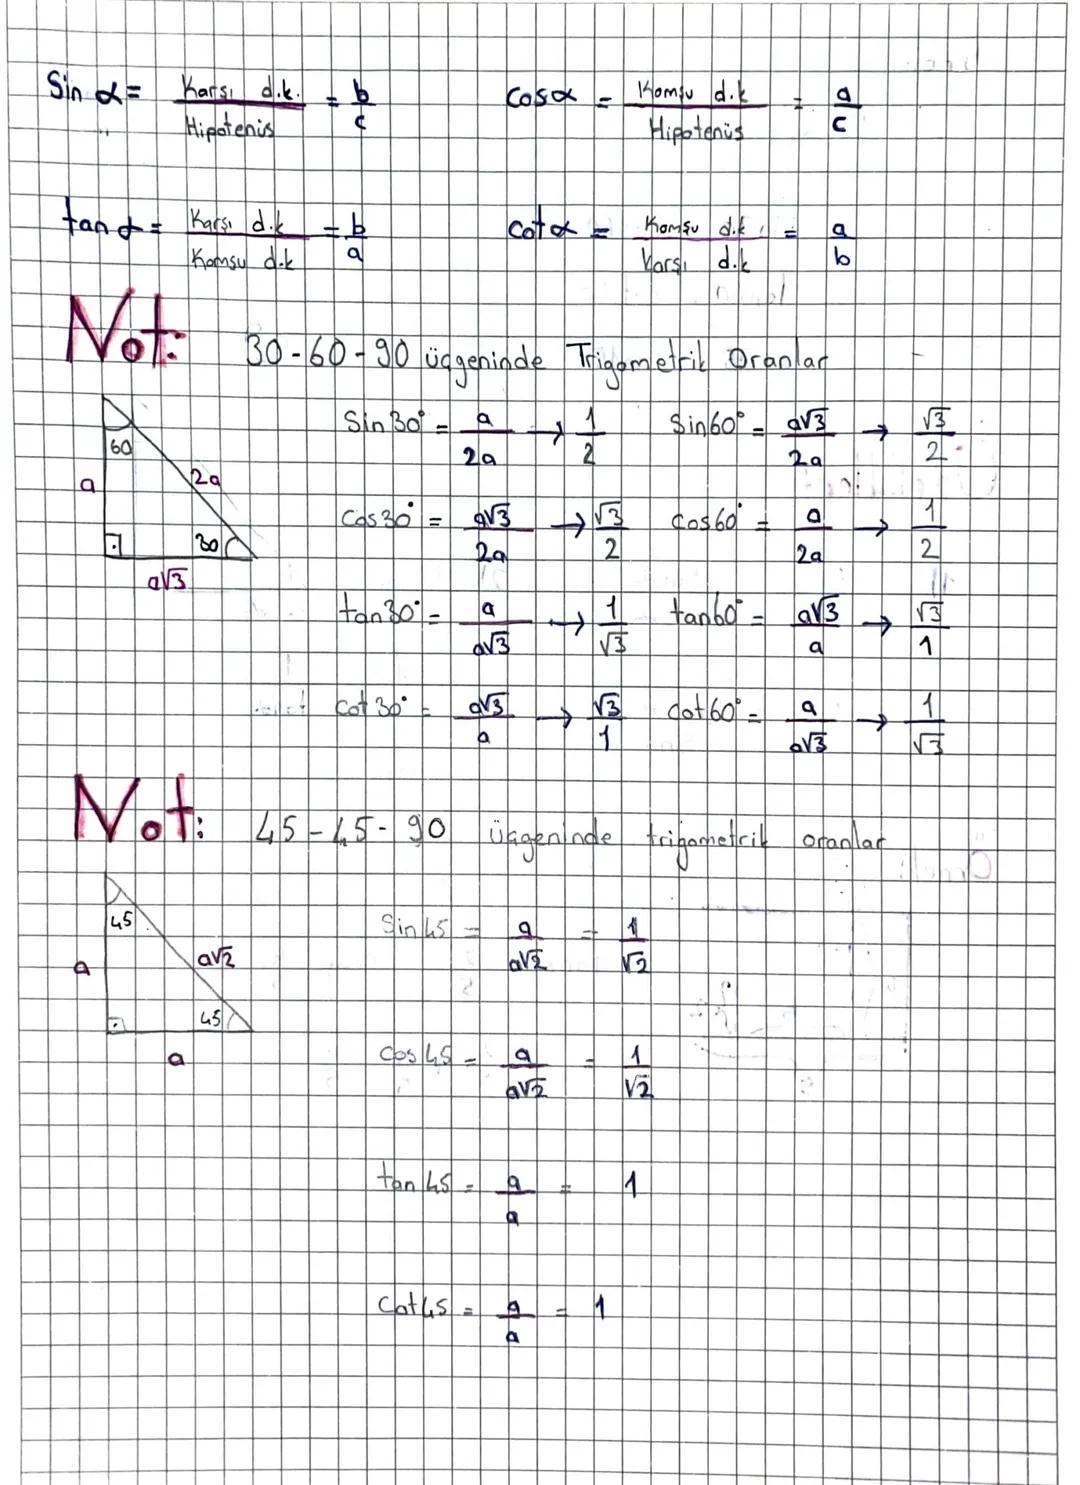 Sin α = Karşı d.k. / Hipotenüs = b/c cosα = Komşu d.k / Hipotenüs = a/c
tan α = Karşı d.k / Komşu d.k = b/a cotα = Komşu d.k / Karşı d.k = a/b
Not: 30-60-90 üçgeninde Trigometrik Oranlar
60
a 2a
30
a√3
Sin30° = a/2a → 1/2 Sin60° = a√3/2a → √3/2
Cos30° = a√3/2a → √3/2 Cos60° = a/2a → 1/2
tan30° = a/a√3 → 1/√3 tan60° = a√3/a → √3/1
Cot30° = a√3/a → √3/1 Cot60° = a/a√3 → 1/√3
Not: 45-45-90 üçgeninde trigometrik oranlar
45
a a√2
45
a
Sin45 = a/a√2 = 1/√2
Cos45 = a/a√2 = 1/√2
tan45 = a/a = 1
Cot45 = a/a = 1